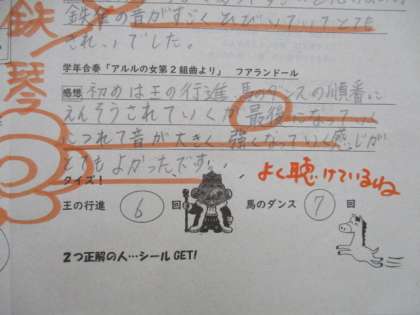 鉄琴の音がすごくひびいていてとても
きれいでした。
鉄琴
学年合奏「アルルの女第2組曲より」 ファランドール
感想 初めは王の行進、馬のダンスの順番に
えんそうされていくが最後になっていく
につれて音が大きく、強くなっていく感じが
とてもよかったです。
よく聴けているね
クイズ!
王の行進 6 回 馬のダンス 7 回
2つ正解の人…シールGET!